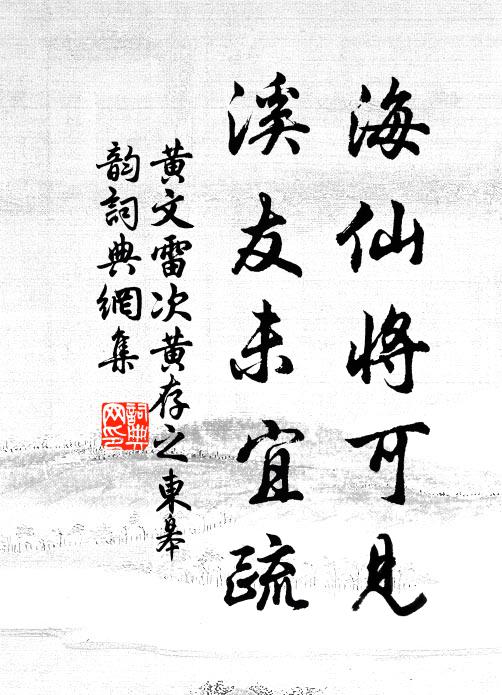 海仙將可見
溪友未宜疏
黃文雷次黃存之東皋
韵詞典網集
詞典网印